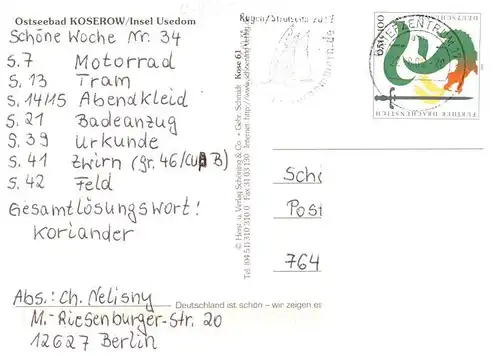 Ostseebad KOSEROW/Insel Usedom
Schöne Woche Nr. 34
S.7 Motorrad
S. 13 Tram
S. 14/15 Abendkleid
S. 21 Badeanzug
S. 39 Urkunde
S. 41 Zwirn (gr. 46/Cup B)
S. 42 Feld
Gesamtlösungswort!
Koriander
Abs.: Ch. Nelisny
M.-Riesenburger-Str. 20
12627 Berlin
© Horst u. Verlag Schöning & Co • Gebr. Schmidt Kose 61
Tel. (04 51) 310 310 Fax 31 03 130 Internet: http://www.
Deutschland ist schön – wir zeigen es
BRIEFZENTRUM
DEUTSCHER DRACHENSTICH
Sch
Post
764